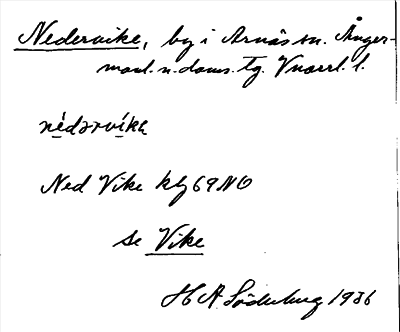 Nedervike, by i Arnäs sn. Ånger-
manl. n. doms. tg. Vnorrl. l.
nédərvíka
Ned Vike kbg 69 NO
se Vike
H A Söderberg 1936